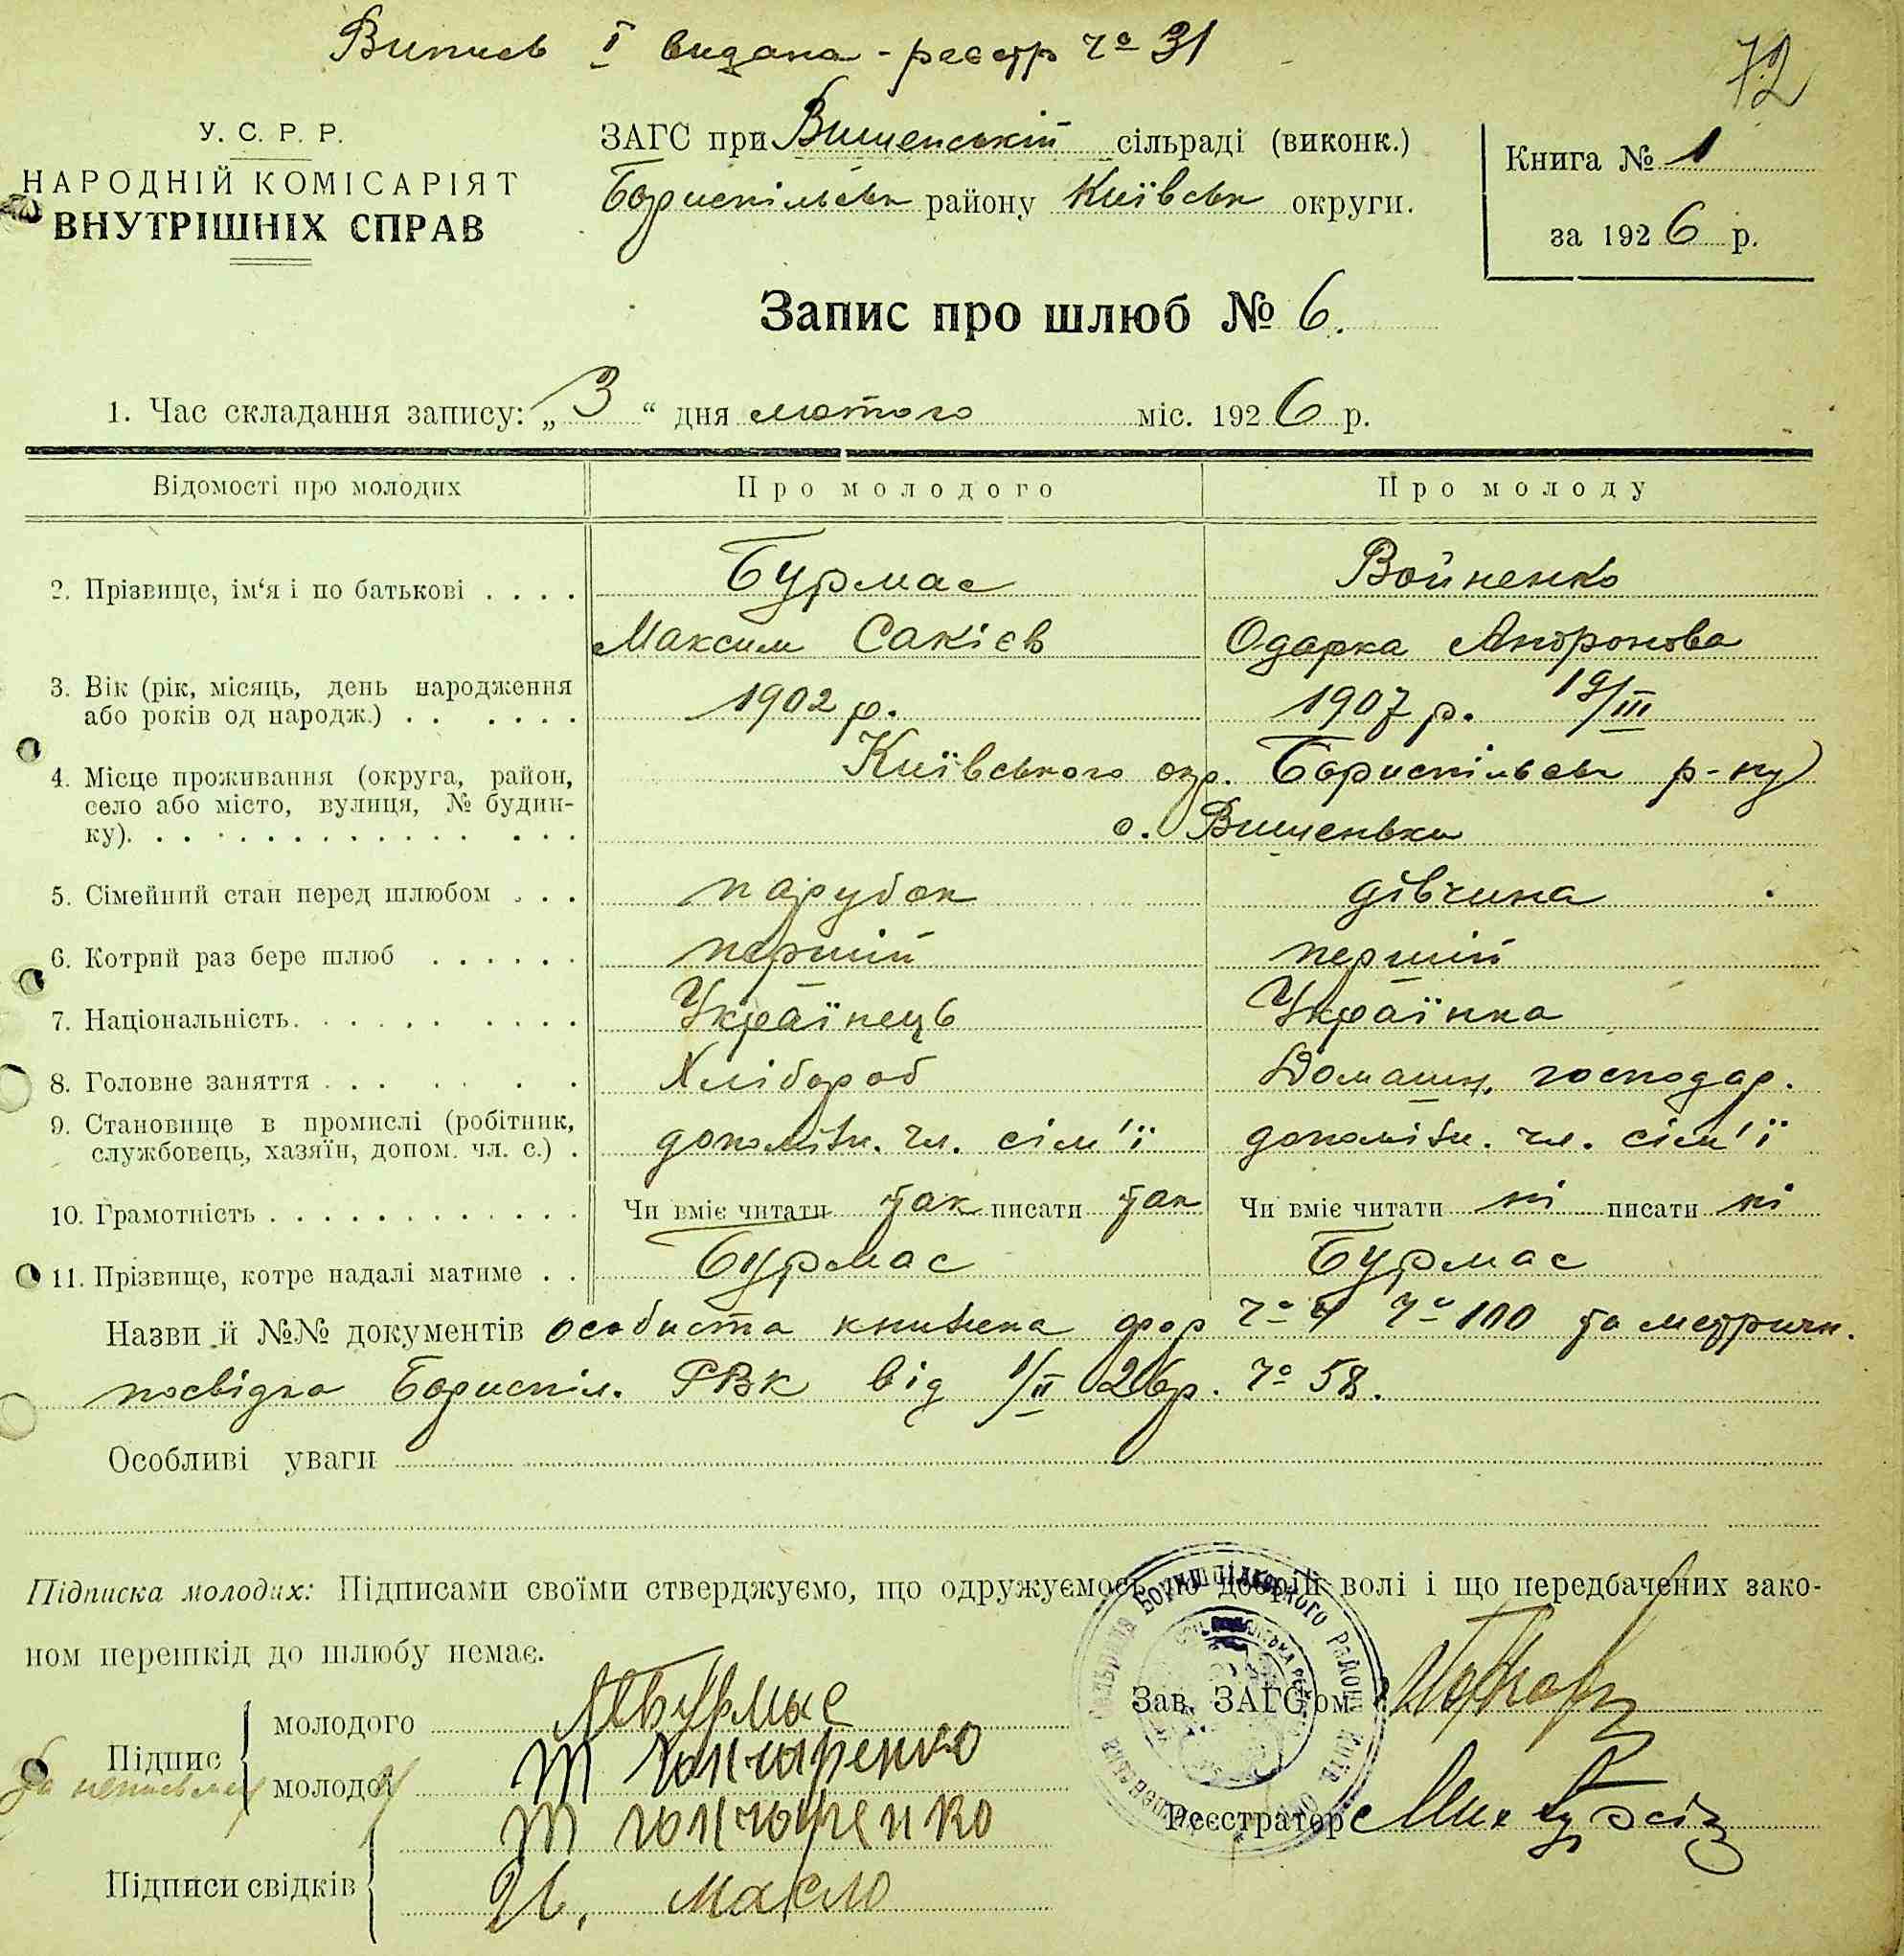 Випись I видана - реєстр № 31
72
У. С. Р. Р.
НАРОДНІЙ КОМІСАРІЯТ
ВНУТРІШНІХ СПРАВ
ЗАГС при Вишенській сільраді (виконк.)
Бориспільськ району Київськ округи.
Книга № 1
за 1926 р.
Запис про шлюб № 6.
1. Час складання запису: „3“ дня лютого міс. 1926 р.
Відомості про молодих
Про молодого
Про молоду
2. Прізвище, ім‘я і по батькові . . . .
Бурмас
Войненко
Максим Сакієв
Одарка Андронова
3. Вік (рік, місяць, день народження
або років од народж.) . . . . . .
1902 р.
1907 р. 19/III
4. Місце проживання (округа, район,
село або місто, вулиця, № будин-
ку). . . . . . . . . . . . . . .
Київського окр. Бориспільськ р-ну
с. Вишеньки
5. Сімейний стан перед шлюбом . . .
парубок
дівчина
6. Котрий раз бере шлюб . . . . . .
перший
перший
7. Національність. . . . . . . . . .
Українець
Українка
8. Головне заняття . . . . . . .
Хлібороб
Домашн. господар.
9. Становище в промислі (робітник,
службовець, хазяїн, допом. чл. с.) .
допоміжн. чл. сім'ї
допоміжн. чл. сім'ї
10. Грамотність . . . . . . . . . . . . .
Чи вміє читати так писати так
Чи вміє читати ні писати ні
11. Прізвище, котре надалі матиме . .
Бурмас
Бурмас
Назви й №№ документів особиста книжка фор № 4 № 100 та метричн.
посвідка Бориспіл. РВК від 1/II 26р. № 58.
Особливі уваги
Підписка молодих: Підписами своїми стверджуємо, що одружуємось по добрій волі і що передбачених зако-
ном перешкід до шлюбу немає.
Підпис
молодого
МБурмас
молодої
Т Гончаренко
за неписьмен
Т Гончаренко
Підписи свідків
И. Масло
Зав. ЗАГС'ом
Реєстратор